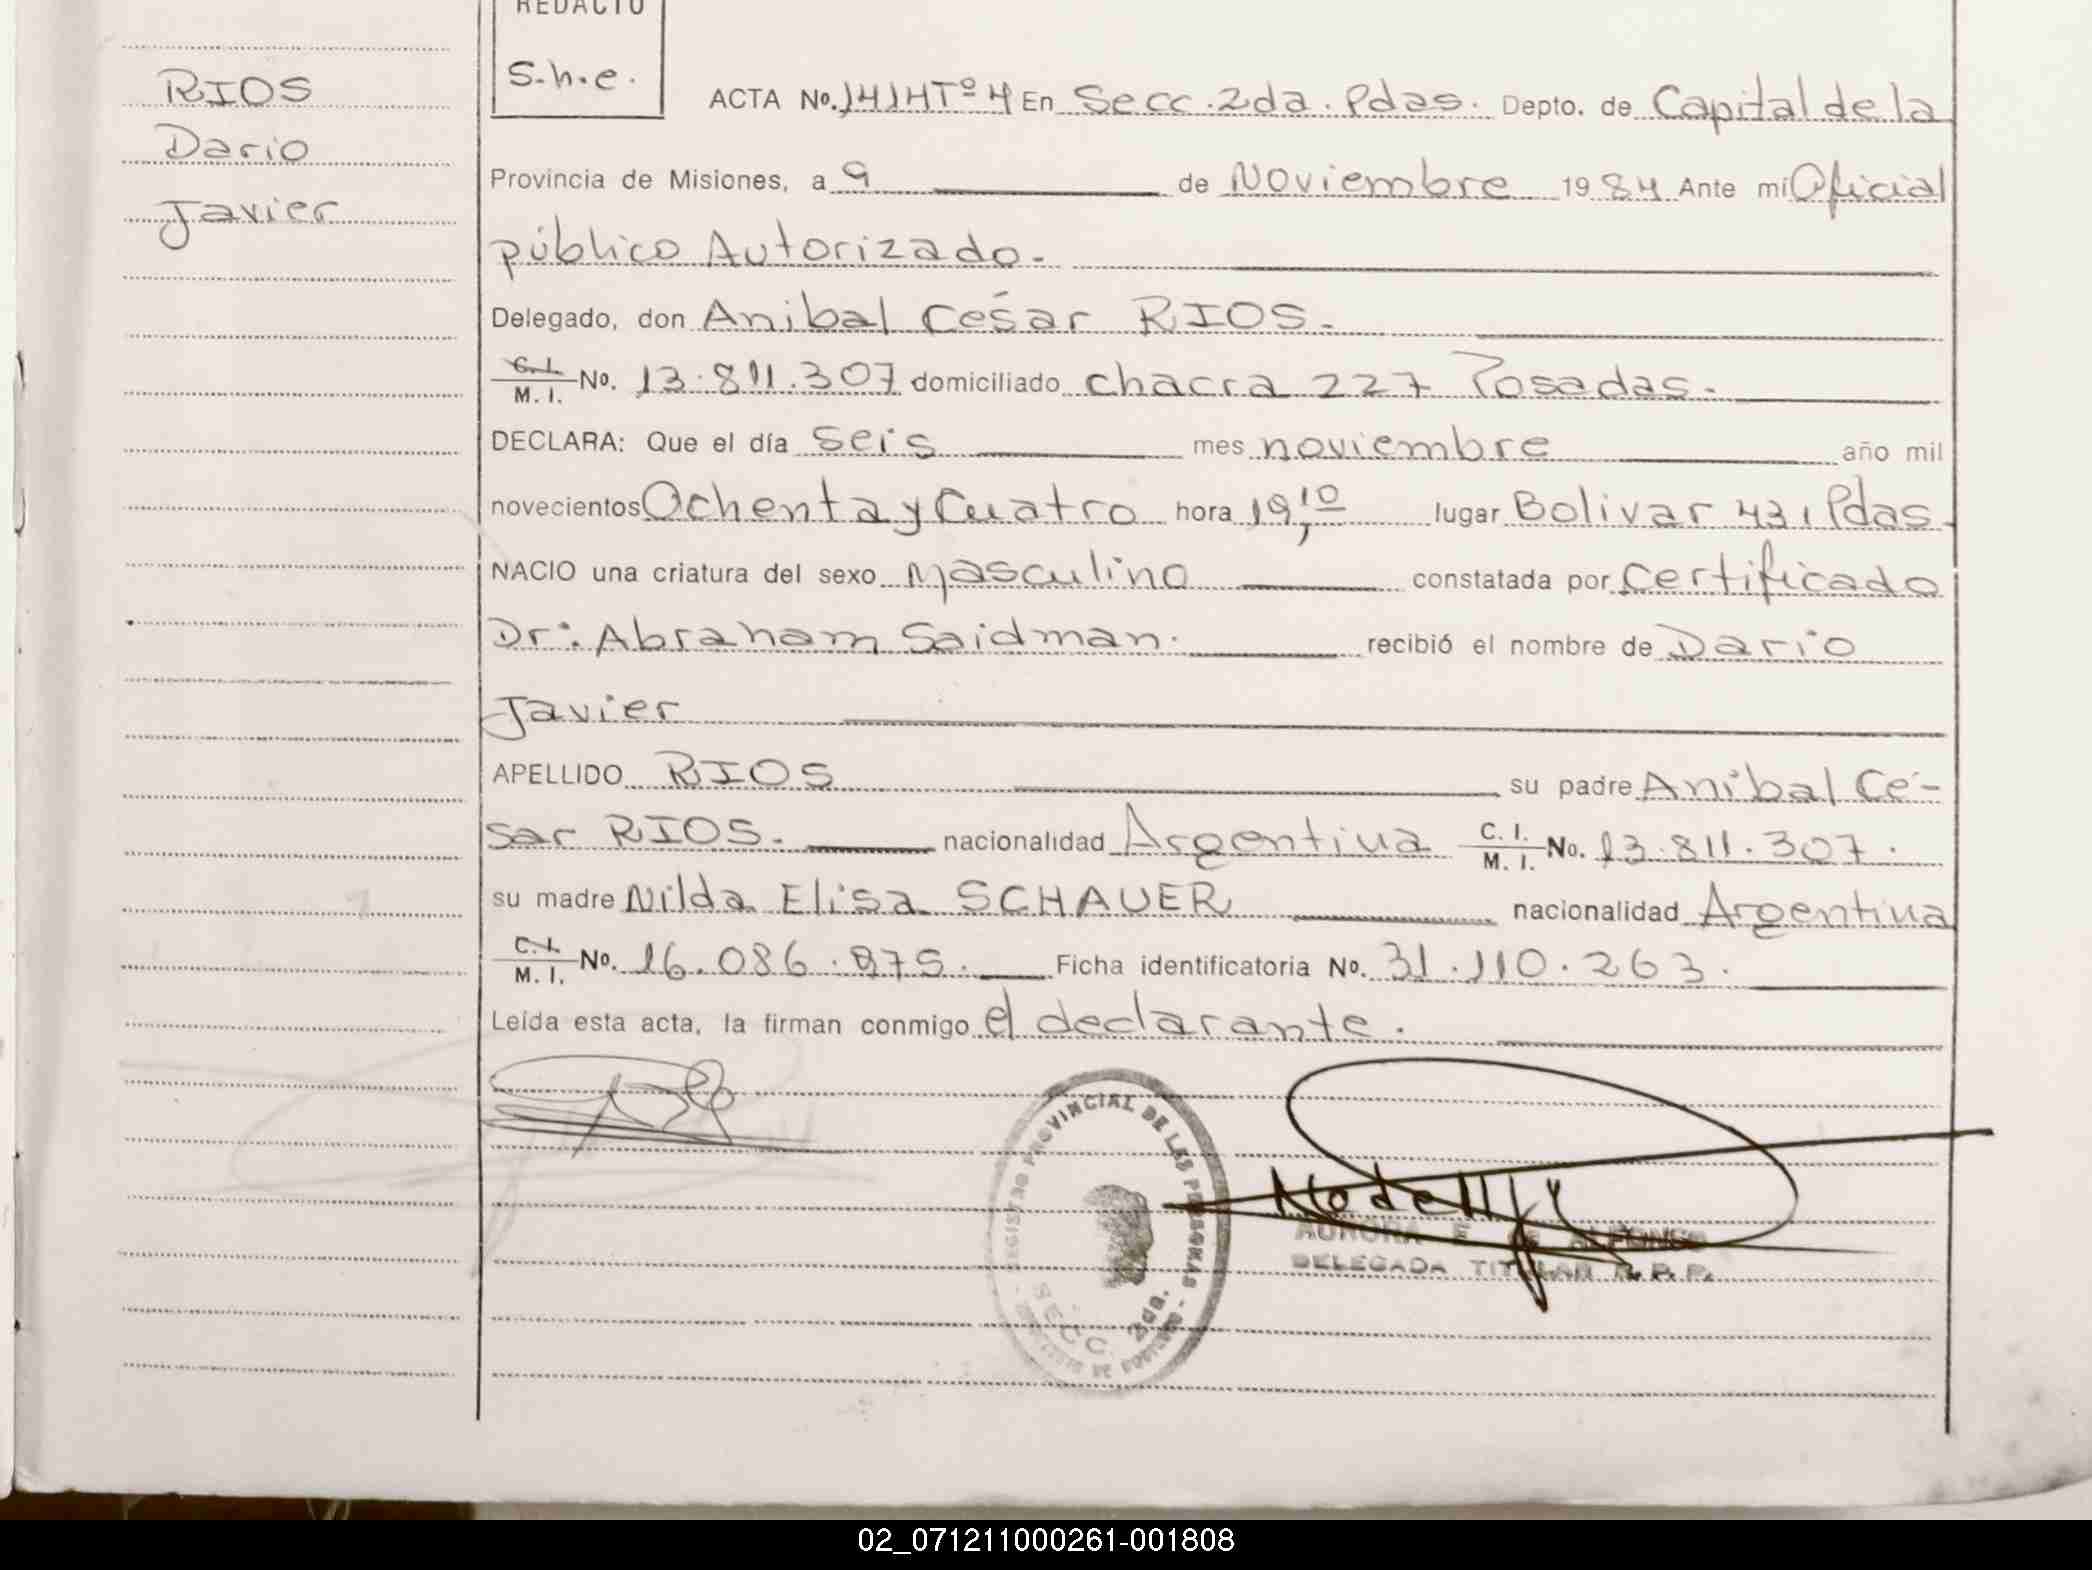 REDACTO
S.h.e.
RIOS
Dario
Javier
ACTA No. 1414 Tº 4 En Secc. 2da. Pdas. Depto. de Capital de la
Provincia de Misiones, a 9 de Noviembre 1984 Ante mí Oficial
público Autorizado.
Delegado, don Anibal César RIOS.
C. I. M. I. No. 13.811.307 domiciliado chacra 227 Posadas.
DECLARA: Que el día seis mes noviembre año mil
novecientos Ochenta y Cuatro hora 19,10 lugar Bolivar 431 Pdas.
NACIO una criatura del sexo Masculino constatada por Certificado
Dr. Abraham Saidman. recibió el nombre de Dario
Javier
APELLIDO RIOS su padre Anibal Cé-
sar RIOS. nacionalidad Argentina C. I. M. I. No. 13.811.307.
su madre Nilda Elisa SCHAUER nacionalidad Argentina
C. I. M. I. No. 16.086.975. Ficha identificatoria No. 31.110.263.
Leída esta acta, la firman conmigo el declarante.
REGISTRO PROVINCIAL DE LAS PERSONAS
SECC. 2da.
AURORA DE ALFONSO
DELEGADA TITULAR R. P. P.
02_071211000261-001808